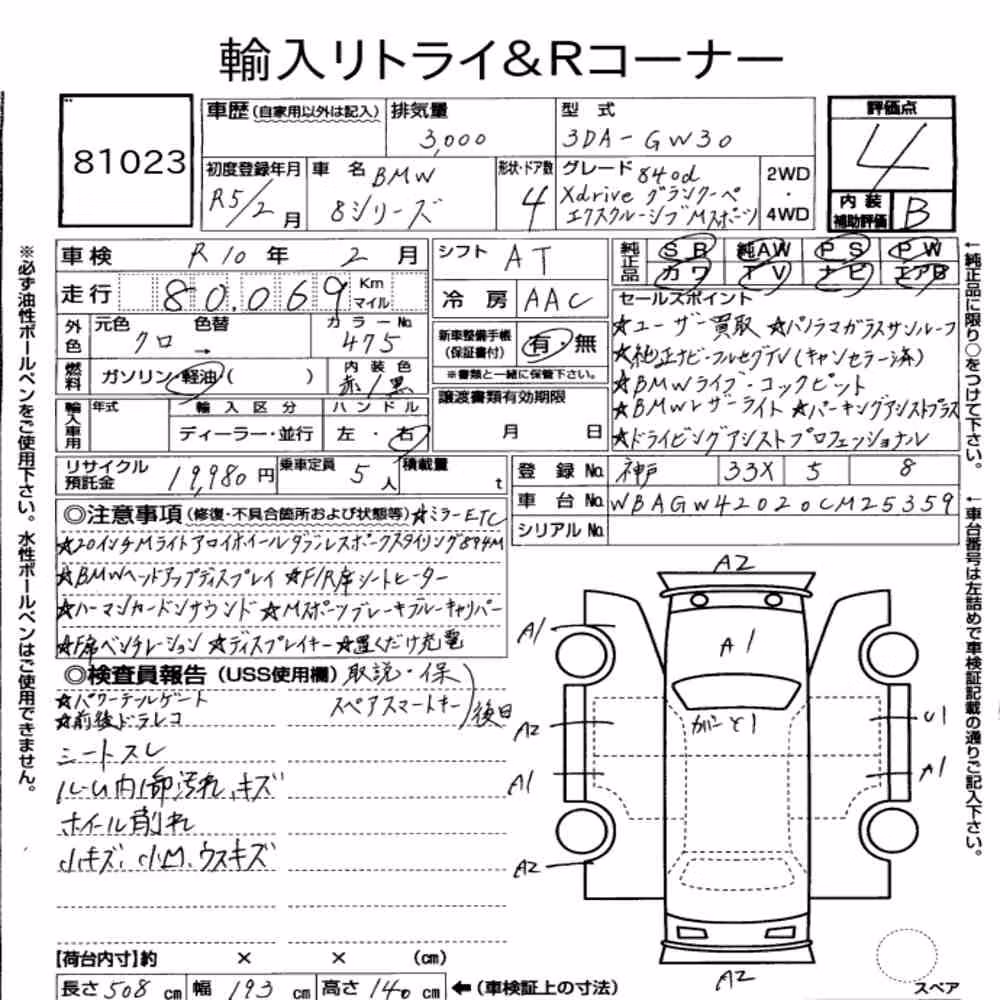 輸入リトライ&Rコーナー
81023
車歴(自家用以外は記入) 排気量 3,000 型式 3DA-GW30
評価点 4
初度登録年月 R5/2月 車名 BMW 8シリーズ 形状・ドア数 4 グレード 840d Xdrive グランクーペ エクスクルーシブ Mスポーツ 2WD・4WD
内装補助評価 B
車検 R10年 2月 シフト AT 純正品 SR 純AW PS PW
カワ TV ナビ エアB
走行 80,069 Km マイル 冷房 AAC
外色 元色 クロ 色替 → カラーNo. 475
新車整備手帳(保証書付) 有・無
※書類と一緒に保管下さい。
燃料 ガソリン・軽油( ) 内装色 赤/黒
輸入車用 年式 輸入区分 ディーラー・並行 ハンドル 左・右
譲渡書類有効期限 月 日
セールスポイント
★ユーザー買取 ★パノラマガラスサンルーフ
★純正ナビ・フルセグTV(キャンセラー済)
★BMWライブ・コックピット
★BMWレザーライト ★パーキングアシストプラス
★ドライビングアシストプロフェッショナル
リサイクル預託金 19,980円 乗車定員 5人 積載量 t
登録No. 神戸 33X 5 8
車台No. WBAGW42020CM25359
シリアルNo.
◎注意事項(修復・不具合箇所および状態等) ★ミラーETC
★20インチMライトアロイホイールダブルスポークスタイリング894M
★BMWヘッドアップディスプレイ ★F/R席シートヒーター
★ハーマンカードンサウンド ★Mスポーツブレーキブルーキャリパー
★F席ベンチレーション ★ディスプレイキー ★置くだけ充電
◎検査員報告(USS使用欄) 取説・保
★パワーテールゲート スペアスマートキー)後日
★前後ドラレコ
シートスレ
ルーム内1部汚れ、キズ
ホイール削れ
小キズ、小凹、ウスキズ
A2
A1
A1
A2
U1
ガラスヒ1
A1
A1
A2
A2
【荷台内寸】約 × × (cm)
長さ 508 cm 幅 193 cm 高さ 140 cm ←(車検証上の寸法)
スペア
※必ず油性ボールペンをご使用下さい。水性ボールペンはご使用できません。
←純正品に限り○をつけて下さい。
←車台番号は左詰めで車検証記載の通りご記入下さい。